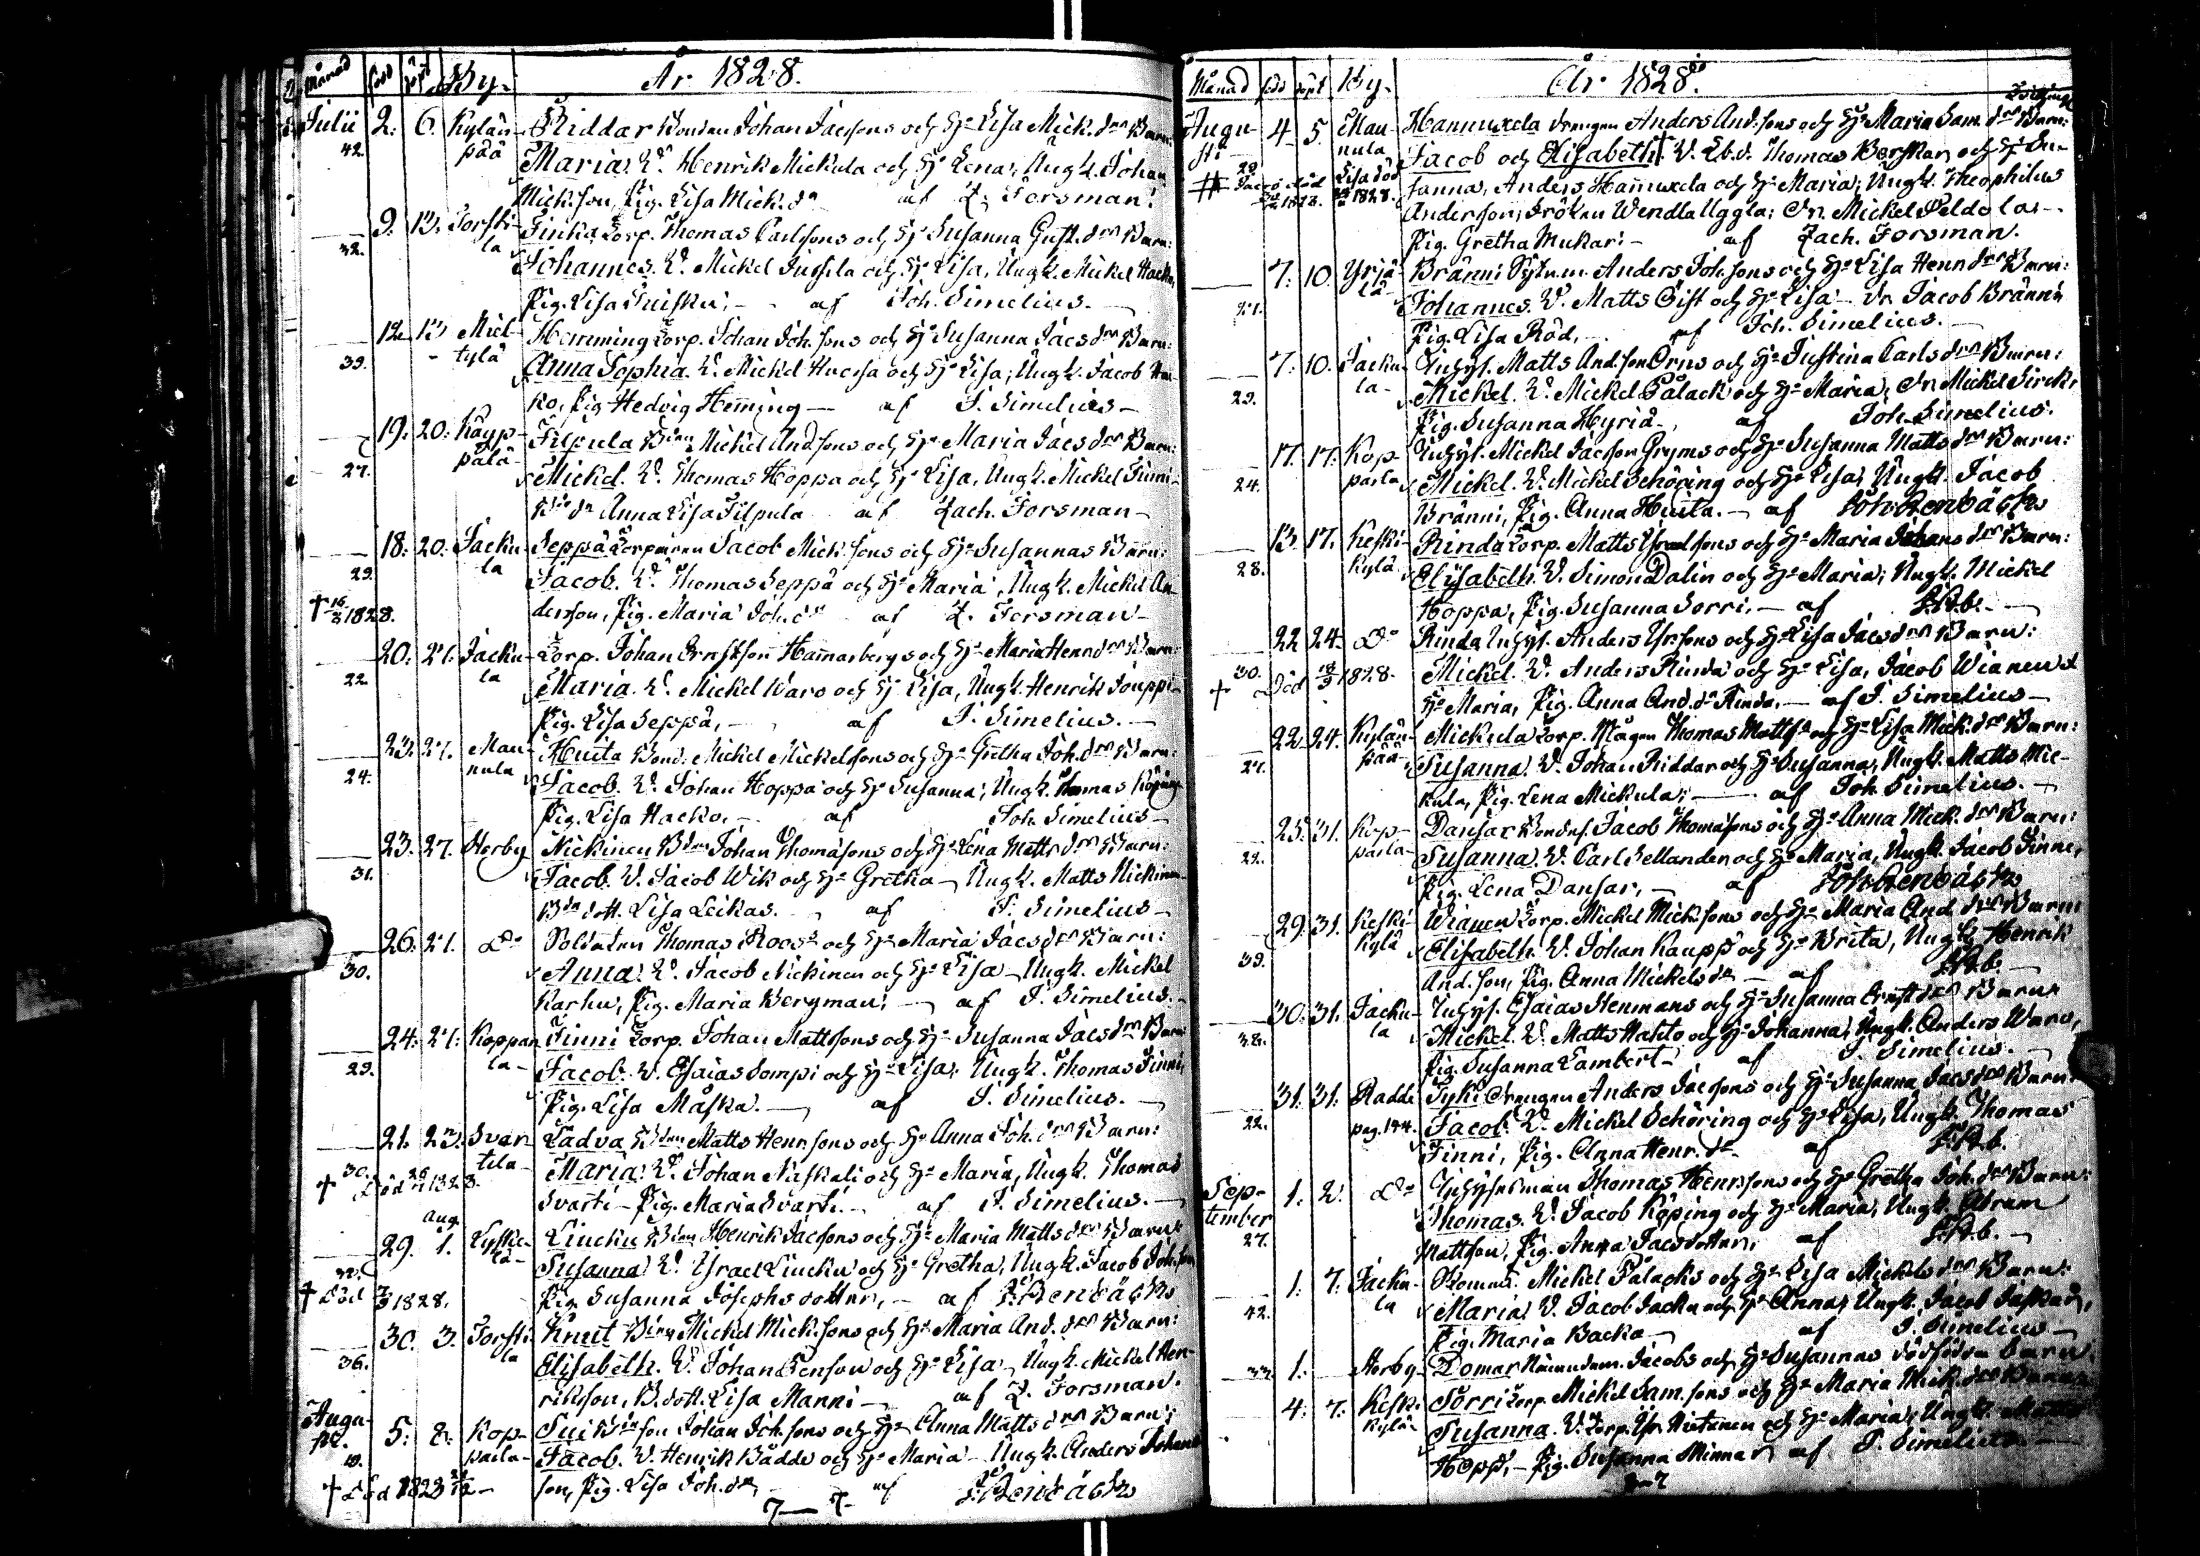 Månad född döpt By. År 1828.
Julii 2. 6. Kylän- Riddar Bondan Johan Jacsons och Hu Lisa Mick. dr Barn:
42. pää Maria. V. Henrik Mickula och Hu Lena, Ungk. Johan
Mickson, Pig. Lisa Mick.dr af Z. Forsman.
9. 13. Torsti- Finka, Torp. Thomas Carlsons och Hu Susanna Gust. drs Barn:
32. la Johannes. V. Mickel Jussila och Hu Lisa, Ungk. Mickel
Pig. Lisa af Joh. Simelius.
12. 13 Miel- Hemming Torp. Johan Joh. sons och Hu Susanna Jacs drs Barn:
33. tylä Anna Sophia. V. Mickel och Hu Lisa; Ungk. Jacob
ko, Pig. Hedvig Heming — af J. Simelius —
19. 20. Käyp- Filpula Bdn Mickel And sons och Hu Maria Jacs drs Barn:
27. pälä Mickel. V. Thomas Hoppa och Hu Lisa, Ungk. Mickel Finni-
Anna Lisa Filpula af Zach. Forsman —
18. 20. Jacku- Seppä Torparen Jacob Mick. sons och Hu Susannas Barn:
29. la Jacob. V. Thomas Seppä och Hu Maria, Ungk. Mickel An-
† 1828. dersson, Pig. Maria Joh. dr af Z. Forsman —
20. 21. Jacku- Torp. Johan Ernstson Hamarbergs och Hu Maria Henr drs Barn:
22. la Maria. V. Mickel Waro och Hu Lisa, Ungk. Henrik Jouppi-
Pig. Lisa Seppä, — af J. Simelius. —
23. 27. Mau- Huita Bond. Mickel Mickelsons och Hu Gretha Joh. drs Barn:
24. nula Jacob. V. Johan Hoppa och Hu Susanna; Ungk. Thomas Köping
Pig. Lisa Hacko, — af Joh. Simelius —
23. 27. Herby Nickinen Bdn Johan Thomasons och Hu Lena Matts drs Barn:
31. Jacob. V. Jacob Wik och Hu Gretha — Ungk. Matts Nickinen
dott. Lisa Leikas. af J. Simelius —
26. 27. Do Soldaten Thomas Roos och Hu Maria Jacs drs Barn:
30. Anna. V. Jacob Nickinen och Hu Lisa — Ungk. Mickel
Karhu, Pig. Maria Bergman; — af J. Simelius. —
24. 27. Koppar Finni Torp. Johan Mattsons och Hu Susanna Jacs drs Barn
29. la- Jacob. V. Esaias Sompi och Hu Lisa; Ungk. Thomas Finni,
Pig. Lisa Maska. — af J. Simelius. —
21. 23. Svar- Ladva Bdn Matts Henr. sons och Hu Anna Joh. drs Barn:
30. tila- Maria. V. Johan Naskali och Hu Maria, Ungk. Thomas
† Död 1828. Svarti — Pig. Maria Svarti. — af J. Simelius. —
Aug.
29. 1. Lyske- Liucku Bdn Henrik Jacsons och Hu Maria Matts drs Barn
lä- Susanna. V. Israel Liucku och Hu Gretha, Ungk. Jacob Joh. son
† Död 1828. Pig. Susanna Josephs dotter, — af J. Renbäck
30. 3. Torsti- Knut Bdn Mickel Mick. sons och Hu Maria And. drs Barn:
36. la Elisabeth. V. Johan och Hu Lisa — Ungk. Mickel Hen-
rikson, B. dott. Lisa Manni — af Z. Forsman.
Augu-
sti. 5. 8. Kop- Sui Bdn son Johan Joh. sons och Hu Anna Matts drs Barn;
parla- Jacob. V. Henrik Rädde och Hu Maria — Ungk. Anders Johans
† Död 1828 son, Pig. Lisa Joh. dr, — af J. Renbäck
7 — 7
Månad född döpt By. År 1828.
Augu- 4 5. Mau- Hannuxela drengen Anders And. sons och Hu Maria Sam. drs Barn:
sti nula Jacob och Elisabeth V. Thomas och Hu Su-
29. Lisa död 1828. sanna, Anders Hannuxela och Hu Maria; Ungk. Theophilus
Anderson; Fröken Wendla Uggla; Dr. Mickel
Pig. Gretha Mukari — af Zach. Forsman.
7. 10. Yrjä- Bränni Anders Joh. sons och Hu Lisa Henr drs Barn:
lä- Johannes. V. Matts Gift och Hu Lisa — Dr. Jacob Bränni
Pig. Lisa Röd, — af Joh. Simelius. —
7. 10. Jacku- Inhys. Matts And. son Orns och Hu Justina Carls drs Barn:
23. la- Mickel. V. Mickel Palack och Hu Maria; Dr. Mickel
Pig. Susanna Hyria —, af Joh. Simelius.
17. 17. Kop- Inhys. Mickel Jacson Gryms och Hu Susanna Matts drs Barn:
24. parla Mickel. V. Mickel Schöring och Hu Lisa; Ungk. Jacob
Bränni, Pig. Anna Huita. — af Joh. Renbäck
13. 17. Keski- Rinda Torp. Matts Israelsons och Hu Maria Johans drs Barn:
28. kylä Elisabeth. V. Simon Dalin och Hu Maria; Ungk. Mickel
Hoppa, Pig. Susanna Sorri. — af J.R.b. —
22 24. Do Rinda Inhys. Anders Isr. sons och Hu Lisa Jacs drs Barn:
30. † Död 1828. Mickel. V. Anders Rinda och Hu Lisa, Jacob Wianen &
Hu Maria, Pig. Anna And. dr Rinda, — af J. Simelius —
22. 24. Kylän- Mickula Torp. Mågen Thomas Matts. och Hu Lisa Mick. drs Barn:
27. pää Susanna. V. Johan Riddar och Hu Susanna; Ungk. Matts Mic-
kula, Pig. Lena Mickula; — af Joh. Simelius. —
25. 31. Kop- Dansar Jacob Thomasons och Hu Anna Mick. drs Barn:
22. parla- Susanna. V. Carl Sellander och Hu Maria, Ungk. Jacob Finne,
Pig. Lena Dansar, — af Joh. Renbäck
29. 31. Keski- Wianen Torp. Mickel Mick. sons och Hu Maria And drs Barn
39. kylä Elisabeth. V. Johan Kaupp och Hu Brita, Ungk. Henrik
And. son, Pig. Anna Mickels dr — af J.R.b. —
30. 31. Jacku- Inhys. Esaias Stenmans och Hu Susanna Ernst drs Barn
38. la Mickel. V. Matts och Hu Johanna, Ungk. Anders Waro,
Pig. Susanna Lambert — af J. Simelius. —
31. 31. Radde Drengen Anders Jacsons och Hu Susanna Jacs drs Barn:
22. pag. 144. Jacob. V. Mickel Schöring och Hu Lisa, Ungk. Thomas
Finni, Pig. Anna Henr. dr — af J.R.b.
Sep- 1. 2. Do Inhysesman Thomas Henr. sons och Hu Gretha Joh. drs Barn:
tember Thomas. V. Jacob Köping och Hu Maria; Ungk. Abram
27. Mattson, Pig. Anna Jacsdotter, af J.R.b. —
1. 7. Jacku- Mickel Palacks och Hu Lisa Mickels drs Barn:
42. la Maria. V. Jacob Jacku och Hu Anna; Ungk. Jacob
Pig. Maria Backa — af J. Simelius —
33 1. Herby- Domar Nämndem. Jacobs och Hu Susannas dödfödda Barn.
4. 7. Keski- Sorri Torp. Mickel Sam. sons och Hu Maria Mick. drs Barn
kylä Susanna. V. Torp. Isr. Hietanen och Hu Maria; Ungk. Matts
Hopp, — Pig. Susanna Minna af J. Simelius —